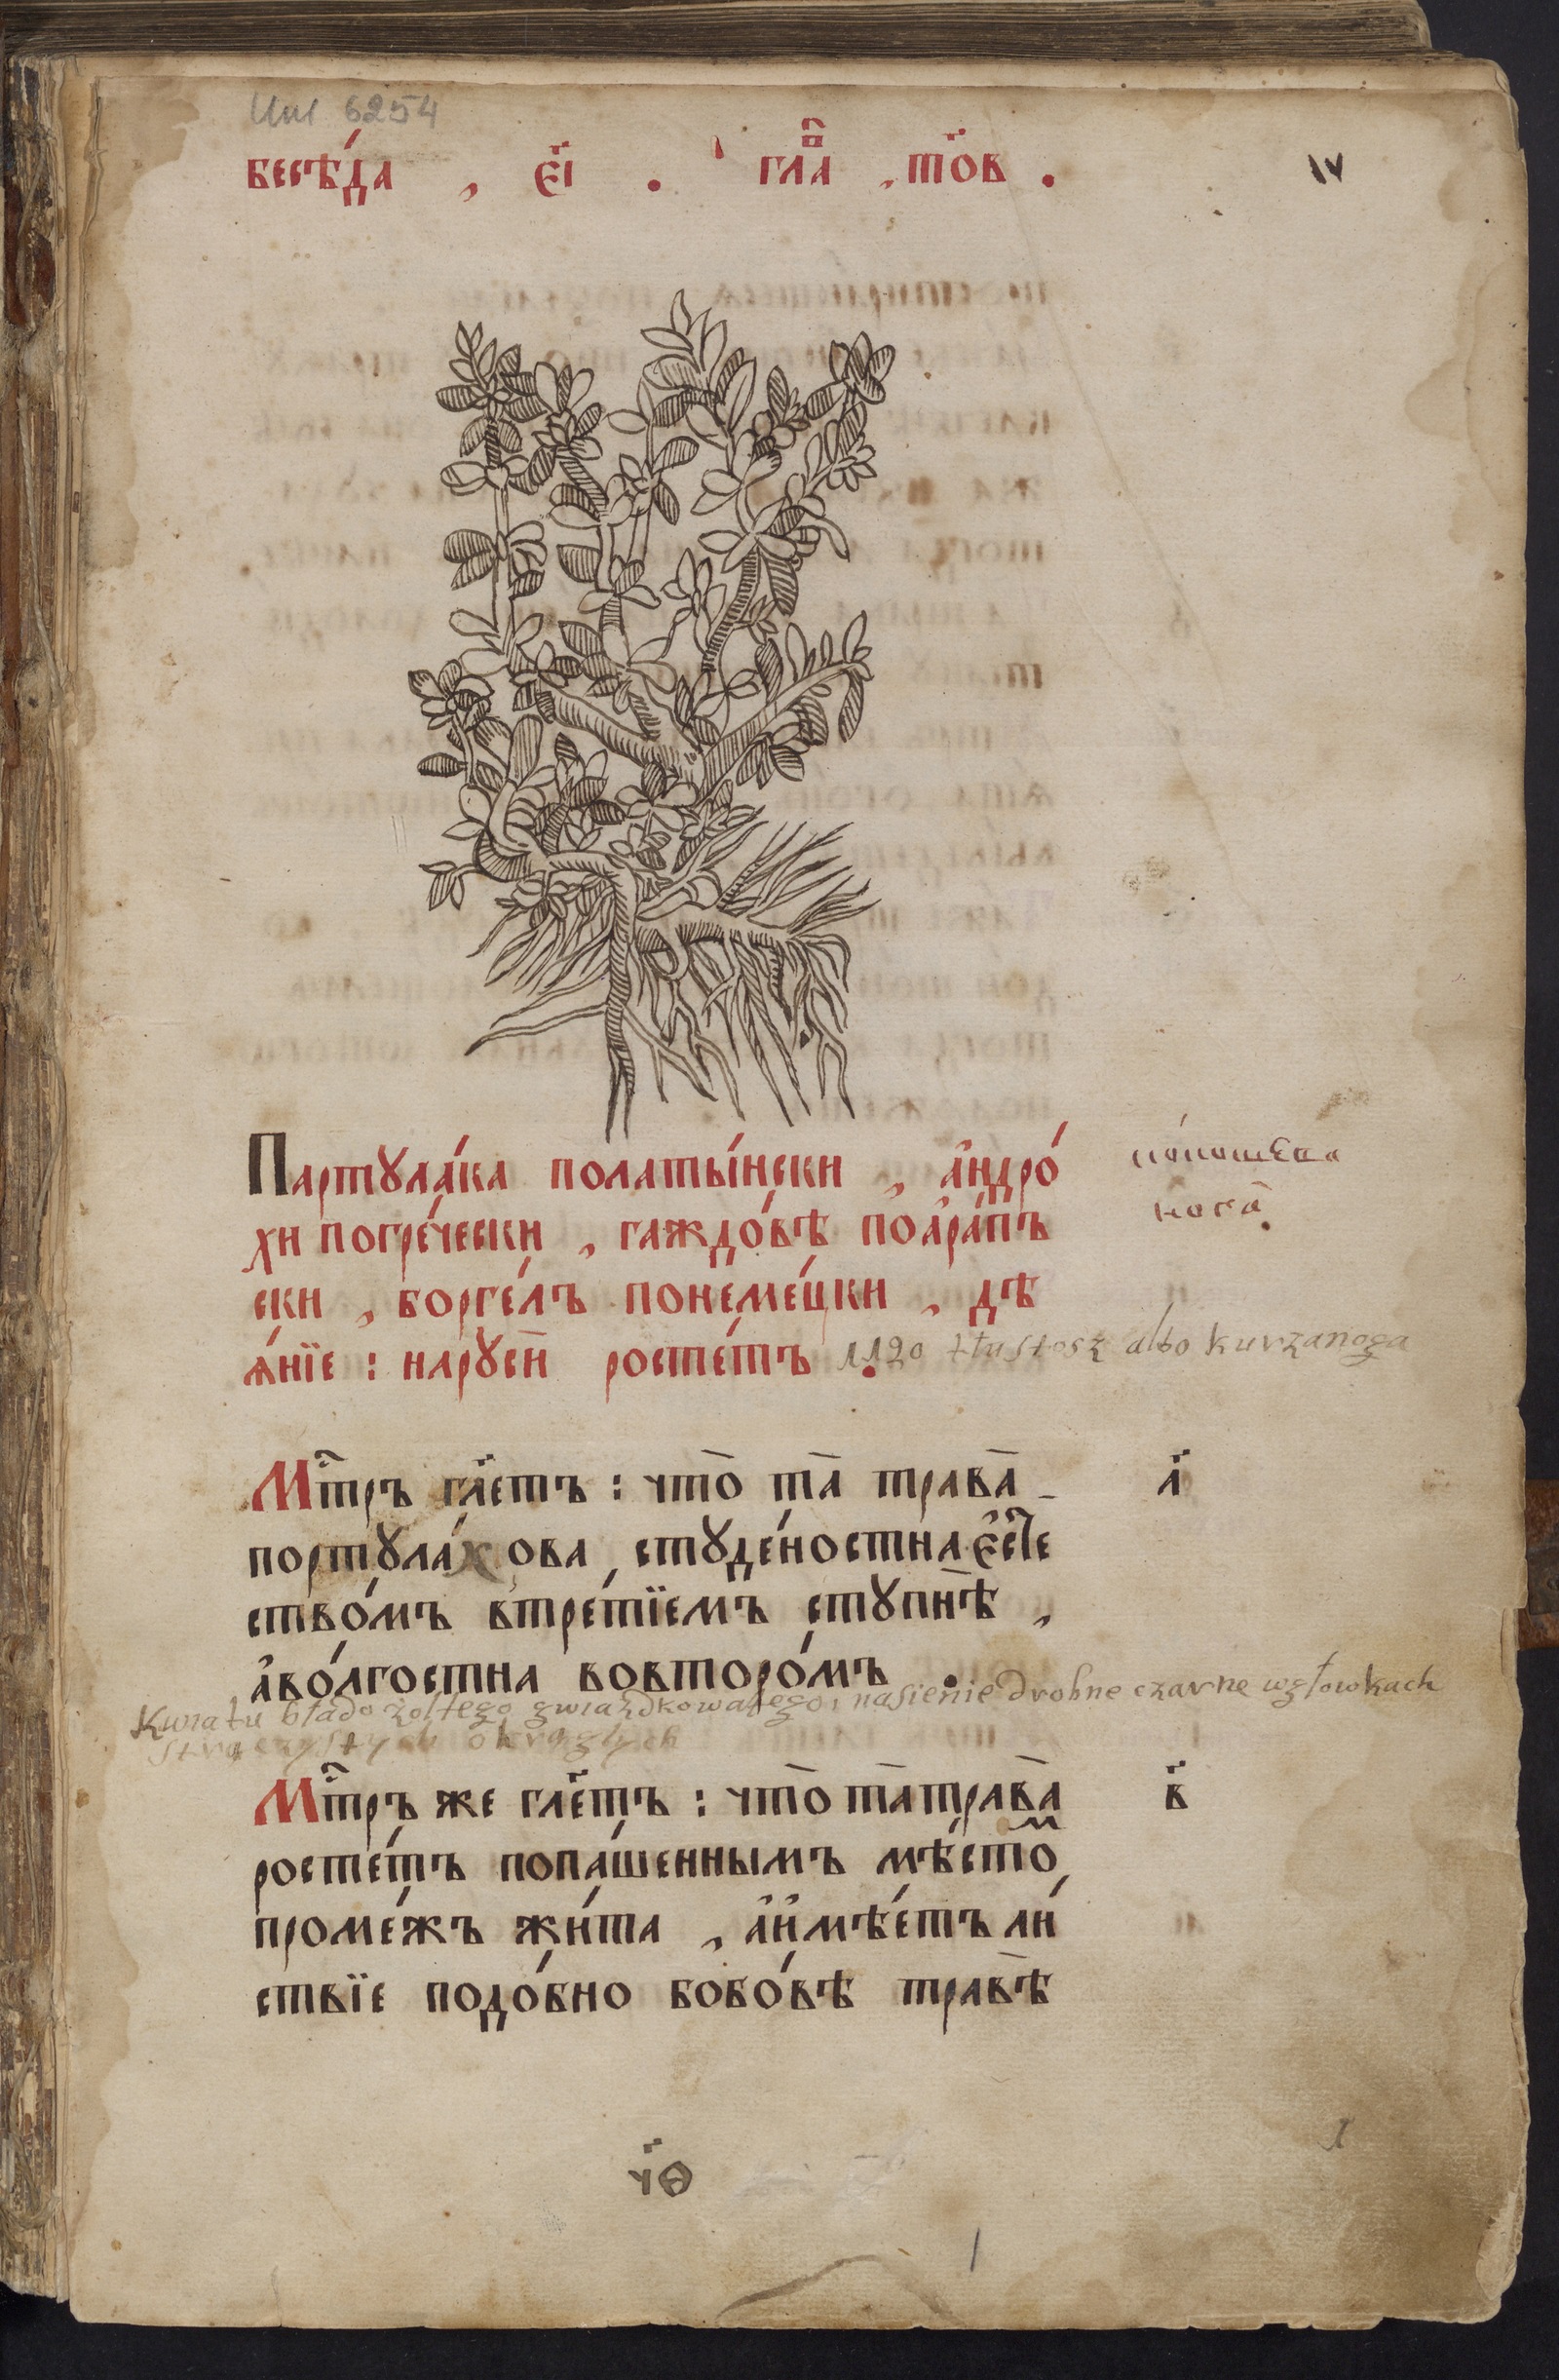 Uni 6254
бесѣ́да , є҃і . гла̑в , то҃в .
Партꙋла́ка полаты́нски , а҆ндро́
хи погре́чески , гаждо́вѣ поа҆ра́пъ
ски , борге́лъ понеме́цки , дѣ
ѧ́нїе : нарꙋсѝ росте́тъ .
1120 tłustosz albo kurzanoga
носа̀
Мт҃ръ гл҃етъ : что̀ та̀ трава̀
портꙋла́хова , стꙋде́ностна є҆сте
ство́мъ втре́тїемъ стꙋпнѣ̀ ,
а҆во́лгостна вовторо́мъ .
а҃
Kwiatu blado żołtego gwiazdkowatego, nasienie drobne czarne w głowkach
strączystych okrągłych
Мт҃ръ же гл҃етъ : что̀ та̀трава̀
росте́тъ попа́шеннымъ мѣ́стом
проме́жъ жи́та , а҆и҆мѣ́етъ ли́
ствїе подо́бно бобо́вѣ травѣ̀
в҃
1